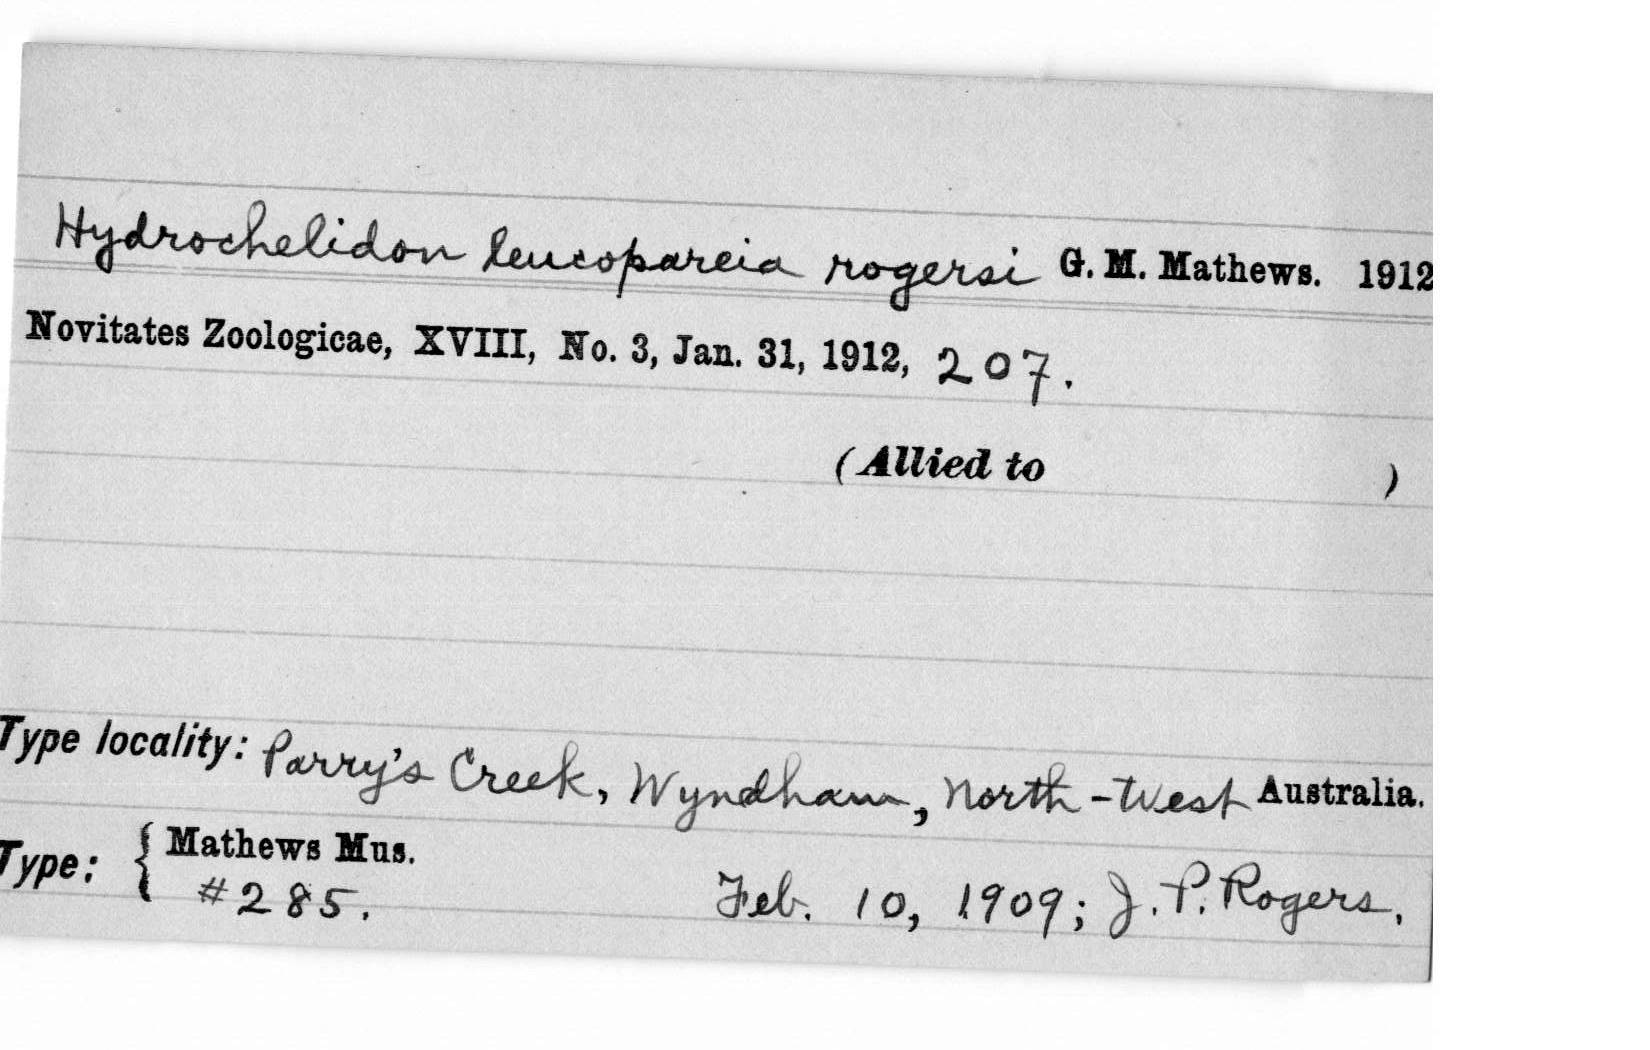 Hydrochelidon leucopareia rogersi G. M. Mathews. 1912
Novitates Zoologicae, XVIII, No. 3, Jan. 31, 1912, 207.
(Allied to )
Type locality: Parry's Creek, Wyndham, North-West Australia.
Type: { Mathews Mus.
#285. Feb. 10, 1909; J. P. Rogers.